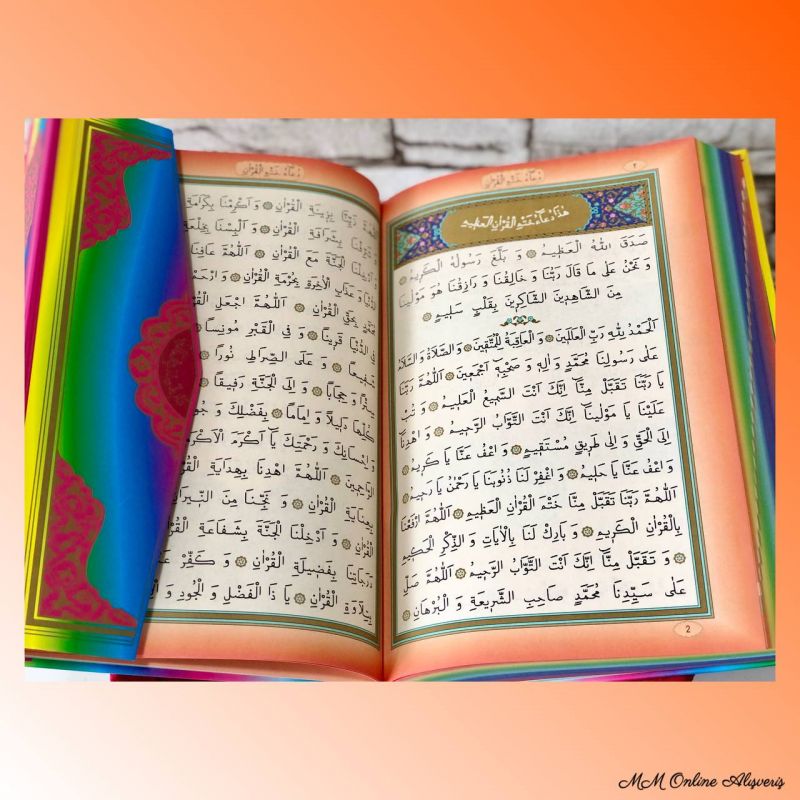 دُعَاءُ خَتْمِ الْقُرْاٰنِ
٢
هٰذَا دُعَاءُ خَتْمِ الْقُرْاٰنِ الْعَظِيمِ
صَدَقَ اللّٰهُ الْعَظِيمُ ۞ وَ بَلَّغَ رَسُولُهُ الْكَرِيمُ ۞
وَ نَحْنُ عَلٰى مَا قَالَ رَبُّنَا وَ خَالِقُنَا وَ رَازِقُنَا هُوَ مَوْلٰينَا
مِنَ الشَّاهِدِينَ الشَّاكِرِينَ بِقَلْبٍ سَلِيمٍ ۞
اَلْحَمْدُ لِلّٰهِ رَبِّ الْعَالَمِينَ ۞ وَ الْعَاقِبَةُ لِلْمُتَّقِينَ ۞ وَ الصَّلَاةُ وَ السَّلَامُ
عَلٰى رَسُولِنَا مُحَمَّدٍ وَ اٰلِهِ وَ صَحْبِهٖ اَجْمَعِينَ ۞ اَللّٰهُمَّ رَبَّنَا
يَا رَبَّنَا تَقَبَّلْ مِنَّا اِنَّكَ اَنْتَ السَّمِيعُ الْعَلِيمُ ۞ وَ تُبْ
عَلَيْنَا يَا مَوْلٰينَا اِنَّكَ اَنْتَ التَّوَّابُ الرَّحِيمُ ۞ وَ اهْدِنَا
اِلَى الْحَقِّ وَ اِلٰى طَرِيقٍ مُسْتَقِيمٍ ۞ وَ اعْفُ عَنَّا يَا كَرِيمُ ۞
وَ اعْفُ عَنَّا يَا حَلِيمُ ۞ وَ اغْفِرْ لَنَا ذُنُوبَنَا يَا رَحْمٰنُ يَا رَحِيمُ ۞
اَللّٰهُمَّ رَبَّنَا تَقَبَّلْ مِنَّا خَتْمَ الْقُرْاٰنِ الْعَظِيمِ ۞ اَللّٰهُمَّ ارْفَعْنَا
بِالْقُرْاٰنِ الْكَرِيمِ ۞ وَ بَارِكْ لَنَا بِالْاٰيَاتِ وَ الذِّكْرِ الْحَكِيمِ
۞ وَ تَقَبَّلْ مِنَّا اِنَّكَ اَنْتَ التَّوَّابُ الرَّحِيمُ ۞ اَللّٰهُمَّ صَلِّ
عَلٰى سَيِّدِنَا مُحَمَّدٍ صَاحِبِ الشَّرِيعَةِ وَ الْبُرْهَانِ ۞
2
دُعَاءُ خَتْمِ الْقُرْاٰنِ
بِزِينَةِ الْقُرْاٰنِ ۞ وَ اَكْرِمْنَا بِكَرَامَةِ
بِشَرَافَةِ الْقُرْاٰنِ ۞ وَ اَلْبِسْنَا بِخِلْعَةِ
الْجَنَّةَ مَعَ الْقُرْاٰنِ ۞ اَللّٰهُمَّ عَافِنَا
وَ عَذَابِ الْاٰخِرَةِ بِحُرْمَةِ الْقُرْاٰنِ ۞ وَ ارْحَمْ
بِحَقِّ الْقُرْاٰنِ ۞ اَللّٰهُمَّ اجْعَلِ
فِي الدُّنْيَا قَرِينًا ۞ وَ فِي الْقَبْرِ مُونِسًا
شَفِيعًا ۞ وَ عَلَى الصِّرَاطِ نُورًا ۞
وَ حِجَابًا ۞ وَ اِلَى الْجَنَّةِ رَفِيقًا ۞
كُلِّهَا دَلِيلًا وَ اِمَامًا ۞ بِفَضْلِكَ وَ
وَ رَحْمَتِكَ يَا اَكْرَمَ الْاَكْرَمِينَ
الرَّاحِمِينَ ۞ اَللّٰهُمَّ اهْدِنَا بِهِدَايَةِ
بِعِنَايَةِ الْقُرْاٰنِ ۞ وَ نَجِّنَا مِنَ النِّيرَانِ
الْقُرْاٰنِ ۞ وَ اَدْخِلْنَا الْجَنَّةَ بِشَفَاعَةِ
دَرَجَاتِنَا بِفَضِيلَةِ الْقُرْاٰنِ ۞ وَ كَفِّرْ
بِتِلَاوَةِ الْقُرْاٰنِ ۞ يَا ذَا الْفَضْلِ وَ الْجُودِ وَ
MM Online Alisveris